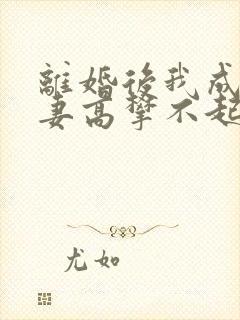 離婚後我成
妻高攀不起
尤如